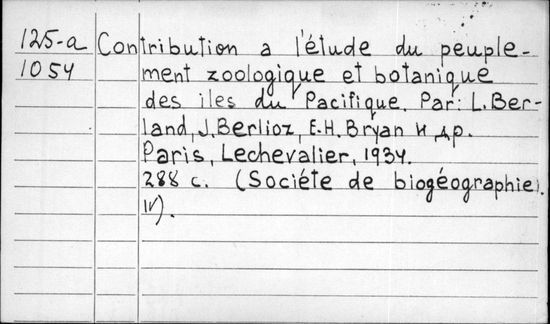 125-a Contribution a l'étude du peuple-
1054 ment zoologique et botanique
des iles du Pacifique. Par: L. Ber-
land, J. Berlioz, E.H. Bryan и др.
Paris, Lechevalier, 1934.
288 с. (Sociéte de biogéographie.
IV).